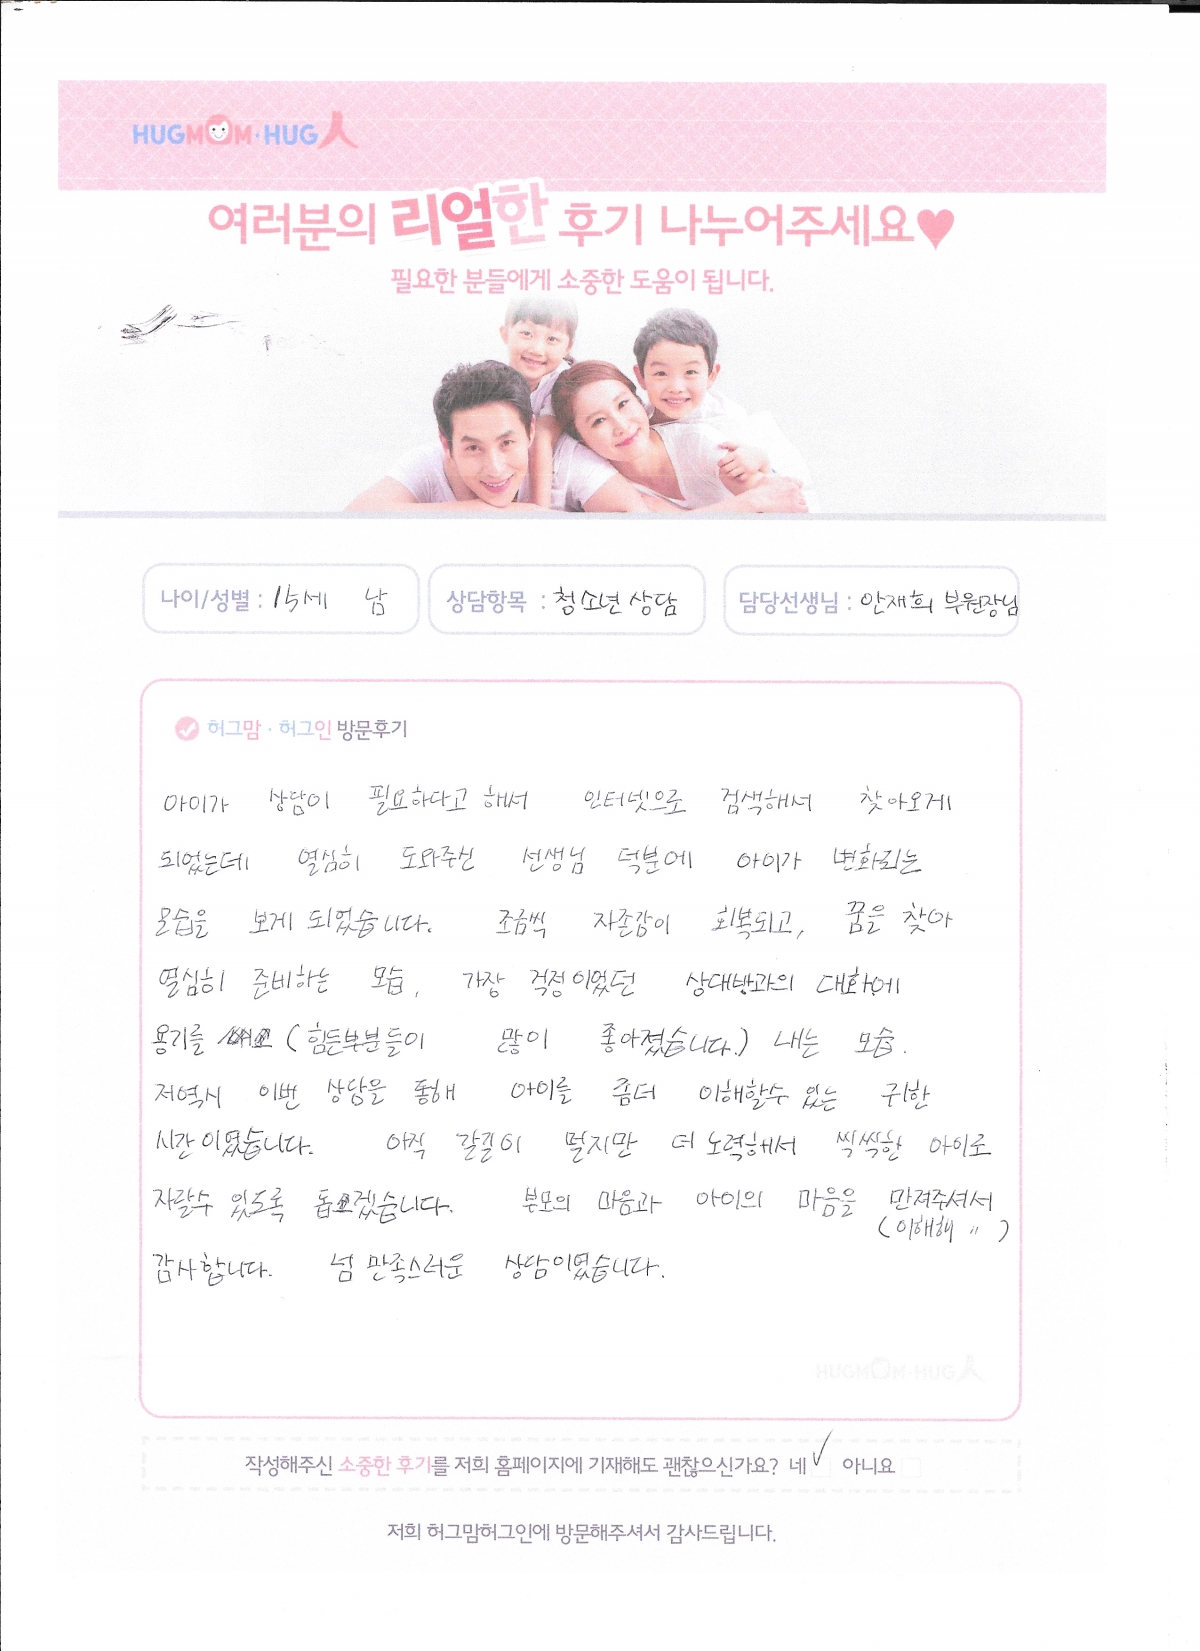 HUGMOM·HUG人
여러분의 리얼한 후기 나누어주세요♥
필요한 분들에게 소중한 도움이 됩니다.
나이/성별 : 15세 남 상담항목 : 청소년 상담 담당선생님 : 안재희 부원장님
허그맘·허그인 방문후기
아이가 상담이 필요하다고 해서 인터넷으로 검색해서 찾아오게
되었는데 열심히 도와주신 선생님 덕분에 아이가 변화되는
모습을 보게 되었습니다. 조금씩 자존감이 회복되고, 꿈을 찾아
열심히 준비하는 모습, 가장 걱정이었던 상대방과의 대화에
용기를 (힘든부분들이 많이 좋아졌습니다.) 내는 모습.
저역시 이번 상담을 통해 아이를 좀더 이해할수 있는 귀한
시간이였습니다. 아직 갈길이 멀지만 더 노력해서 씩씩한 아이로
자랄수 있도록 돕겠습니다. 부모의 마음과 아이의 마음을 만져주셔서
(이해해 〃)
감사합니다. 넘 만족스러운 상담이였습니다.
HUGMOM·HUG人
작성해주신 소중한 후기를 저희 홈페이지에 기재해도 괜찮으신가요? 네 ✓ 아니요
저희 허그맘허그인에 방문해주셔서 감사드립니다.